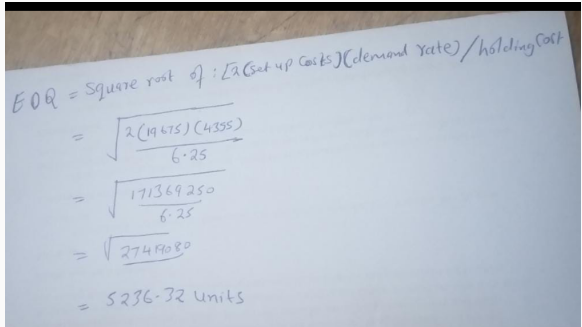 EOQ = Square root of : [2(set up costs)(demand rate)/holding cost
= √2(19675)(4355)
6.25
= √171369250
6.25
= √27419080
= 5236.32 units